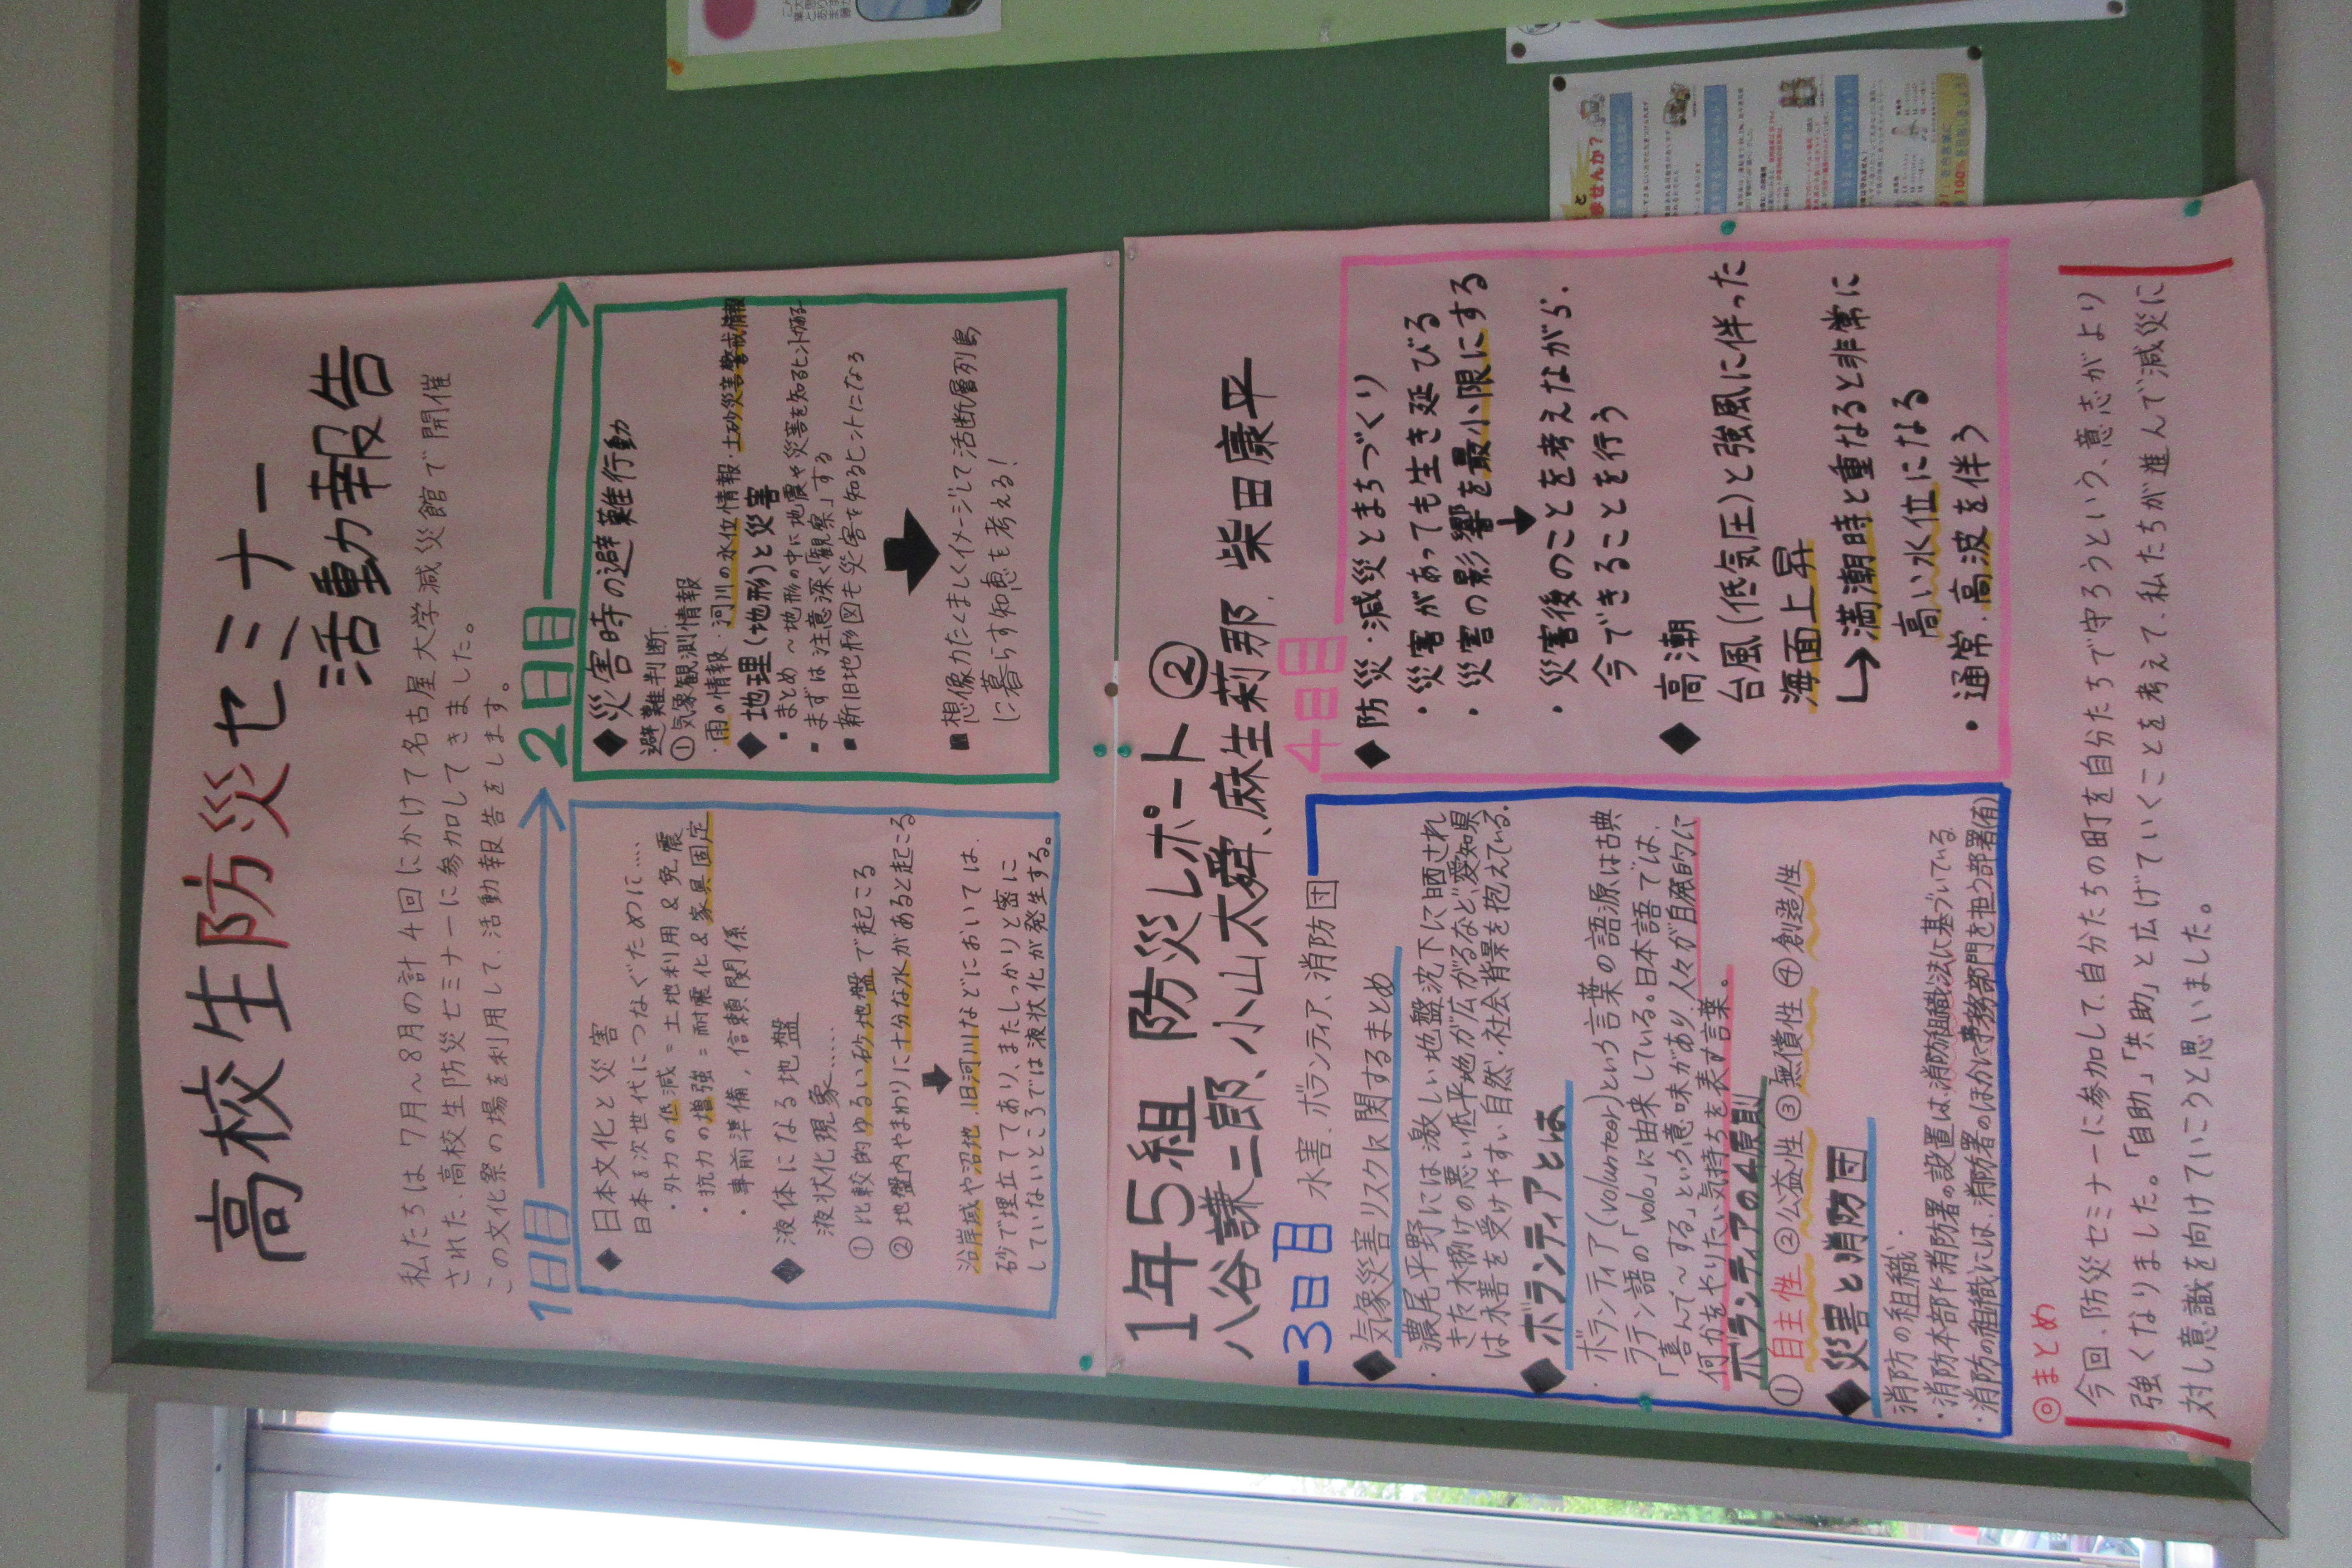 高校生防災セミナー
活動報告
私たちは7月～8月の計4回にかけて名古屋大学減災館で開催
された、高校生防災セミナーに参加してきました。
この文化祭の場を利用して、活動報告をします。
1日目
◆日本文化と災害
日本を次世代につなぐために….
・外力の低減=土地利用&免震
・抗力の増強=耐震化&家具固定
・事前準備,信頼関係
◆液体になる地盤
液状化現象……
①比較的ゆるい砂地盤で起こる
②地盤内やまわりに十分な水があると起こる
沿岸域や沼地、旧河川などにおいては、
砂で埋立ててあり、またしっかりと密に
していないところでは液状化が発生する。
2日目
◆災害時の避難行動
避難判断
①気象観測情報
・雨の情報・河川の水位情報・土砂災害警戒情報
◆地理(地形)と災害
▪まとめ～地形の中に地震や災害を知るヒントが
▪まずは注意深く「観察」する
▪新旧地形図も災害を知るヒントになる
▪想像力たくましくイメージして活断層列島
に暮らす知恵も考える!
1年5組 防災レポート②
八谷謙二郎、小山太舜、麻生莉那、柴田康平
3日目 水害、ボランティア、消防団
◆気象災害リスクに関するまとめ
・濃尾平野には激しい地盤沈下に晒され
きた水捌けの悪い低平地が広がるなど、愛知県
は水害を受けやすい自然・社会背景を抱えている。
◆ボランティアとは
・ボランティア(volunteer)という言葉の語源は古典
ラテン語の「volo」に由来している。日本語では、
「喜んで～する」という意味があり、人々が自発的に
何かをやりたい気持ちを表す言葉。
ボランティアの4原則
①自主性 ②公益性 ③無償性 ④創造性
◆災害と消防団
消防の組織、
・消防本部や消防署の設置は、消防組織法に基づいている
・消防の組織には、消防署のほかに事務部門を担う部署(有)
4日目
◆防災・減災とまちづくり
・災害があっても生き延びる
・災害の影響を最小限にする
・災害後のことを考えながら、
今できることを行う
◆高潮
台風(低気圧)と強風に伴った
海面上昇
↳満潮時と重なると非常に
高い水位になる
・通常、高波を伴う
◎まとめ
今回、防災セミナーに参加して、自分たちの町を自分たちで守ろうという、意志がより
強くなりました。「自助」「共助」と広げていくことを考えて、私たちが進んで減災に
対し意識を向けていこうと思いました。